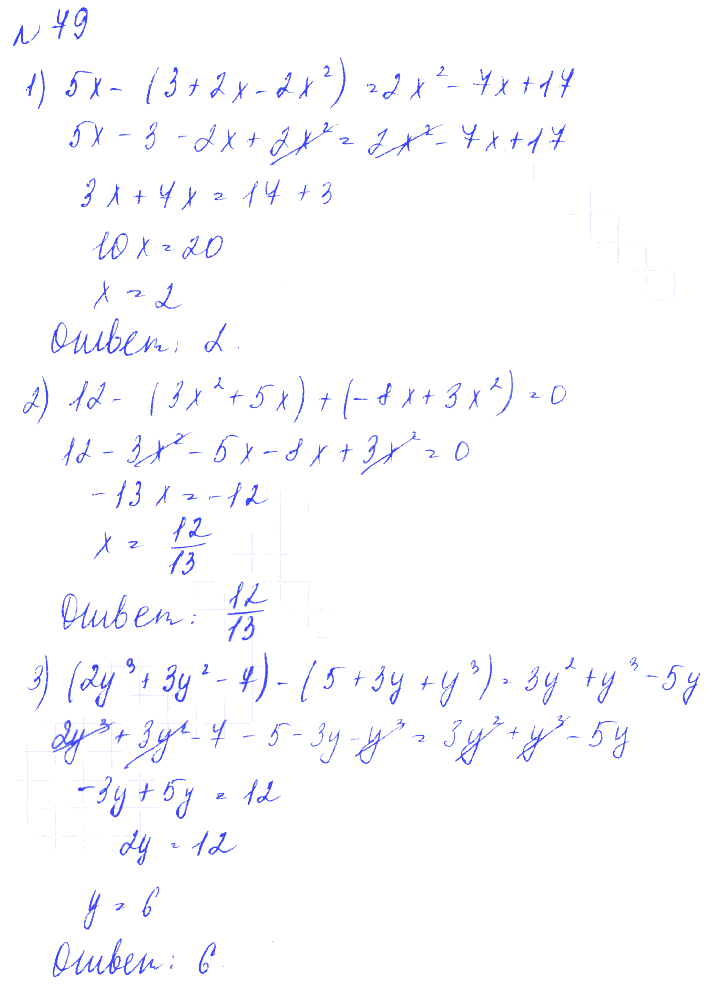 № 79
1) 5x - (3 + 2x - 2x²) = 2x² - 7x + 17
5x - 3 - 2x + 2x² = 2x² - 7x + 17
3x + 7x = 17 + 3
10x = 20
x = 2
Ответ: 2.
2) 12 - (3x² + 5x) + (-8x + 3x²) = 0
12 - 3x² - 5x - 8x + 3x² = 0
-13x = -12
x = 12/13
Ответ: 12/13
3) (2y³ + 3y² - 7) - (5 + 3y + y³) = 3y² + y³ - 5y
2y³ + 3y² - 7 - 5 - 3y - y³ = 3y² + y³ - 5y
-3y + 5y = 12
2y = 12
y = 6
Ответ: 6.